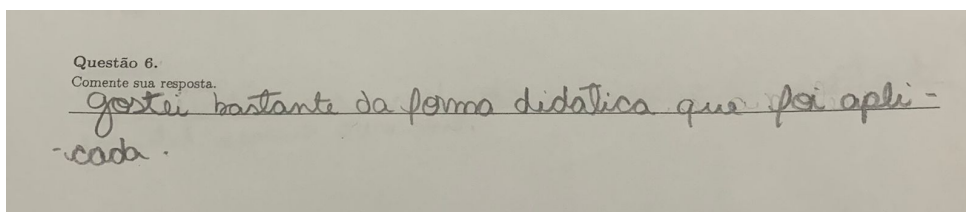 Questão 6.
Comente sua resposta.
gostei bastante da forma didática que foi apli-
-cada.